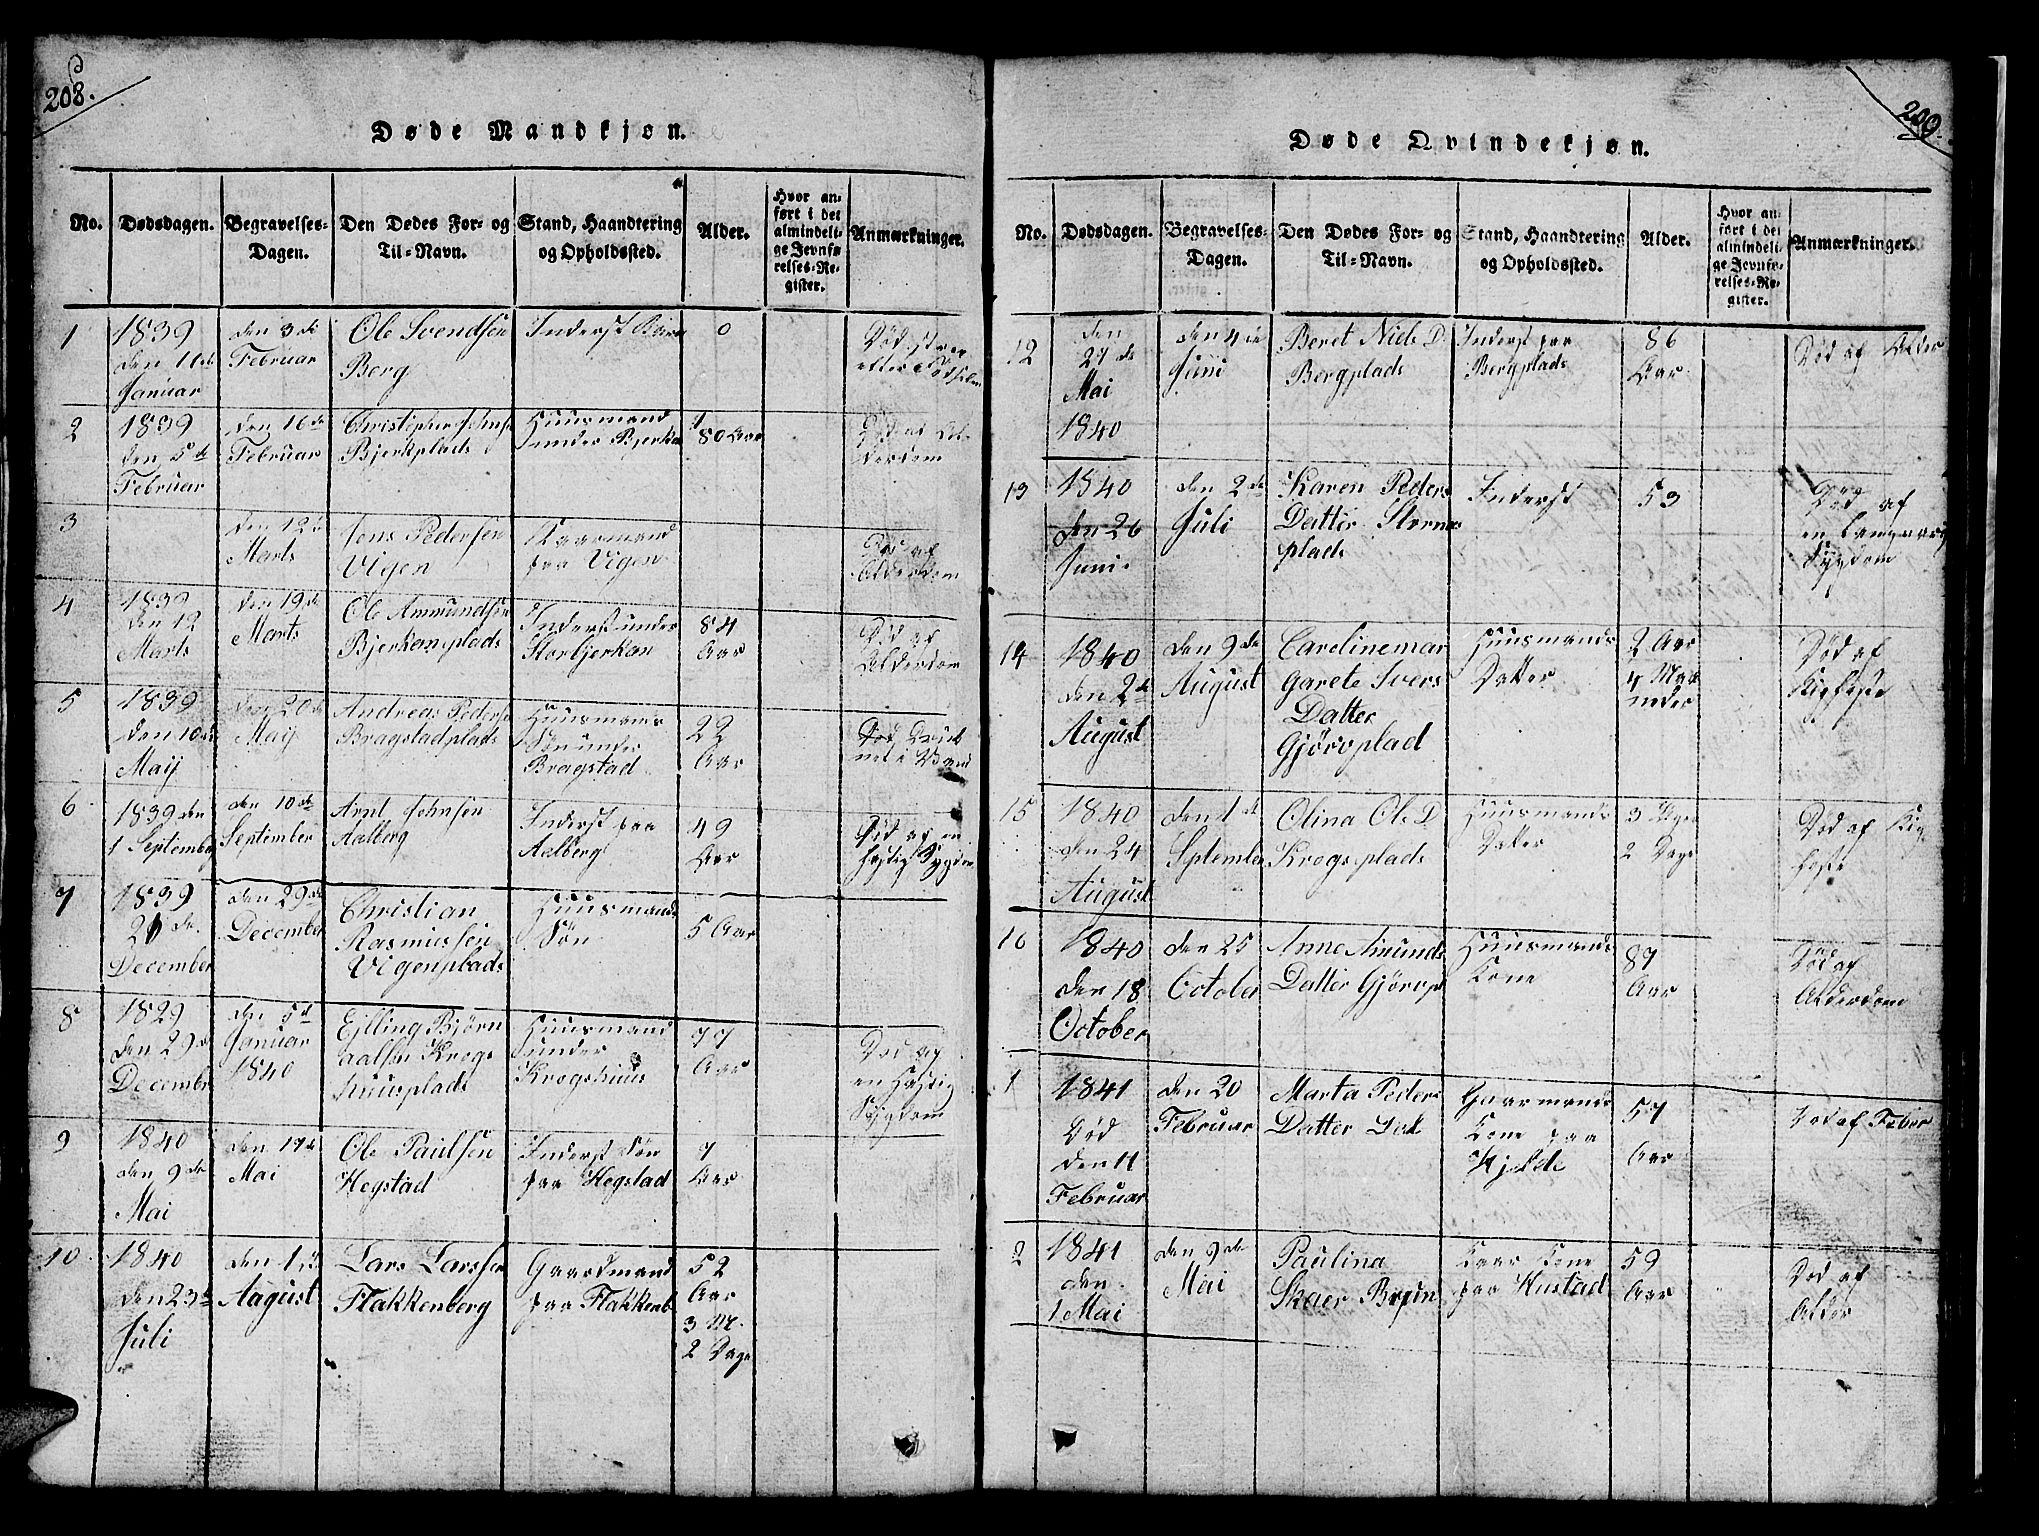 208.
Døde Mandkjøn.
No.
Dødsdagen.
Begravelses-
Dagen.
Den Dødes For- og
Til-Navn.
Stand, Haandtering
og Opholdssted.
Alder.
Hvor an-
ført i det
almindeli-
ge Jevnfø-
relses-Re-
gister.
Anmærkninger.
1
1839
den 11de
Januar
den 3de
Februar
Ole Svendsen
Berg
Inderst Barn
0
Død strax
efter Fødselen
2
1839
den 5de
Februar
den 16de
Februar
Christopher Johnsen
Bjerkplads
Huusmand
under Bjerka
80 Aar
Død af Al-
derdom
3
den 12te
Marts
Jens Pedersen
Vigen
Gaarmand
paa Vigen
Død af
Alderdom
4
1839
den 12
Marts
den 19de
Marts
Ole Ammundsen
Bjerkanplads
Inderst under
Storbjerkan
84
Aar
Død af
Alderdom
5
1839
den 10de
Maij
den 20de
Maij
Andreas Peders
Bragstadplads
Huusmands
Søn under
Bragstad
22
Aar
Død Druk
net i Vand
6
1839 den
1 September
den 10de
September
Arnt Johnsen
Aalberg
Inderst paa
Aalberg
49
Aar
Død af en
hastig Sygdom
7
1839
21 de
December
den 29de
December
Christian
Rasmussen
Vigenplads
Huusmands
Søn
5 Aar
8
1829
den 29de
December
den 5te
Januar
1840
Ejlling Bjørn
aalsen Krogs
huusplads
Huusmand
under
Krogshuus
77
Aar
Død af
en hastig
Sygdom
9
1840
den 9de
Mai
den 17de
Mai
Ole Paulsen
Hegstad
Inderst Søn
paa Hegstad
7
Aar
10
1840
den 23de
Juli
den 1ste
August
Lars Larssen
Flakkenberg
Gaardmand
paa Flakkenb
52
Aar
3 M.
2 Dage
209.
Døde Qvindekjøn.
No.
Dødsdagen.
Begravelses-
Dagen.
Den Dødes For- og
Til-Navn.
Stand, Haandtering
og Opholdssted.
Alder.
Hvor an-
ført i det
almindeli-
ge Jevnfø-
relses-Re-
gister.
Anmærkninger.
12
den
27de
Mai
1840
den 4de
Juni
Beret Niels D.
Bergplads
Inderst paa
Bergplads
86
Aar
Død af Alder
13
1840
den 26
Juni
den 2de
Juli
Karen Peders
Datter Stornæs
plads
Inderst
53
Død af
en langvarig
Sygdom
14
1840
den 2de
August
den 9de
August
Carolinemar
garete Ivers
Datter
Gjörvplad
Huusmands
Datter
2 Aar
4 Maa
neder
Død af
Kighoste
15
1840
den 24
August
den 1de
September
Olina Ole D.
Krogsplads
Huusmands
Datter
3 Uger
2 Dage
Død af Kig
hoste
16
1840
den 18
October
den 25
October
Anne Amunds
Datter Gjörvp
Huusmands
Kone
87
Aar
Død af
Alderdom
1
1841
Død
den 11
Februar
den 20
Februar
Marta Peders
Datter
Gaarmands
Kone paa
57
Aar
Død af Feber
2
1841
den
1 Mai
den 9de
Mai
Paulina
Skaer
Kone
paa Hustad
59
Aar
Død af
Alder